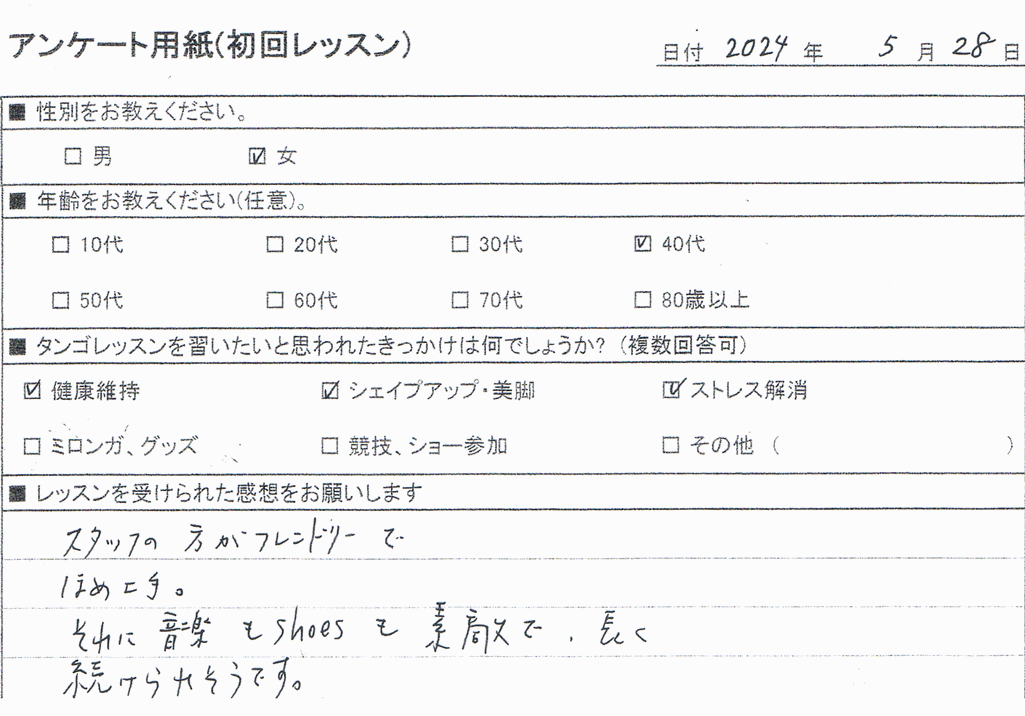 アンケート用紙(初回レッスン)
日付 2024 年 5 月 28 日
■ 性別をお教えください。
□ 男 ☑ 女
■ 年齢をお教えください(任意)。
□ 10代 □ 20代 □ 30代 ☑ 40代
□ 50代 □ 60代 □ 70代 □ 80歳以上
■ タンゴレッスンを習いたいと思われたきっかけは何でしょうか? (複数回答可)
☑ 健康維持 ☑ シェイプアップ・美脚 ☑ ストレス解消
□ ミロンガ、グッズ □ 競技、ショー参加 □ その他 ( )
■ レッスンを受けられた感想をお願いします
スタッフの方がフレンドリーで
ほめ上手。
それに音楽もshoesも素敵で、長く
続けられそうです。